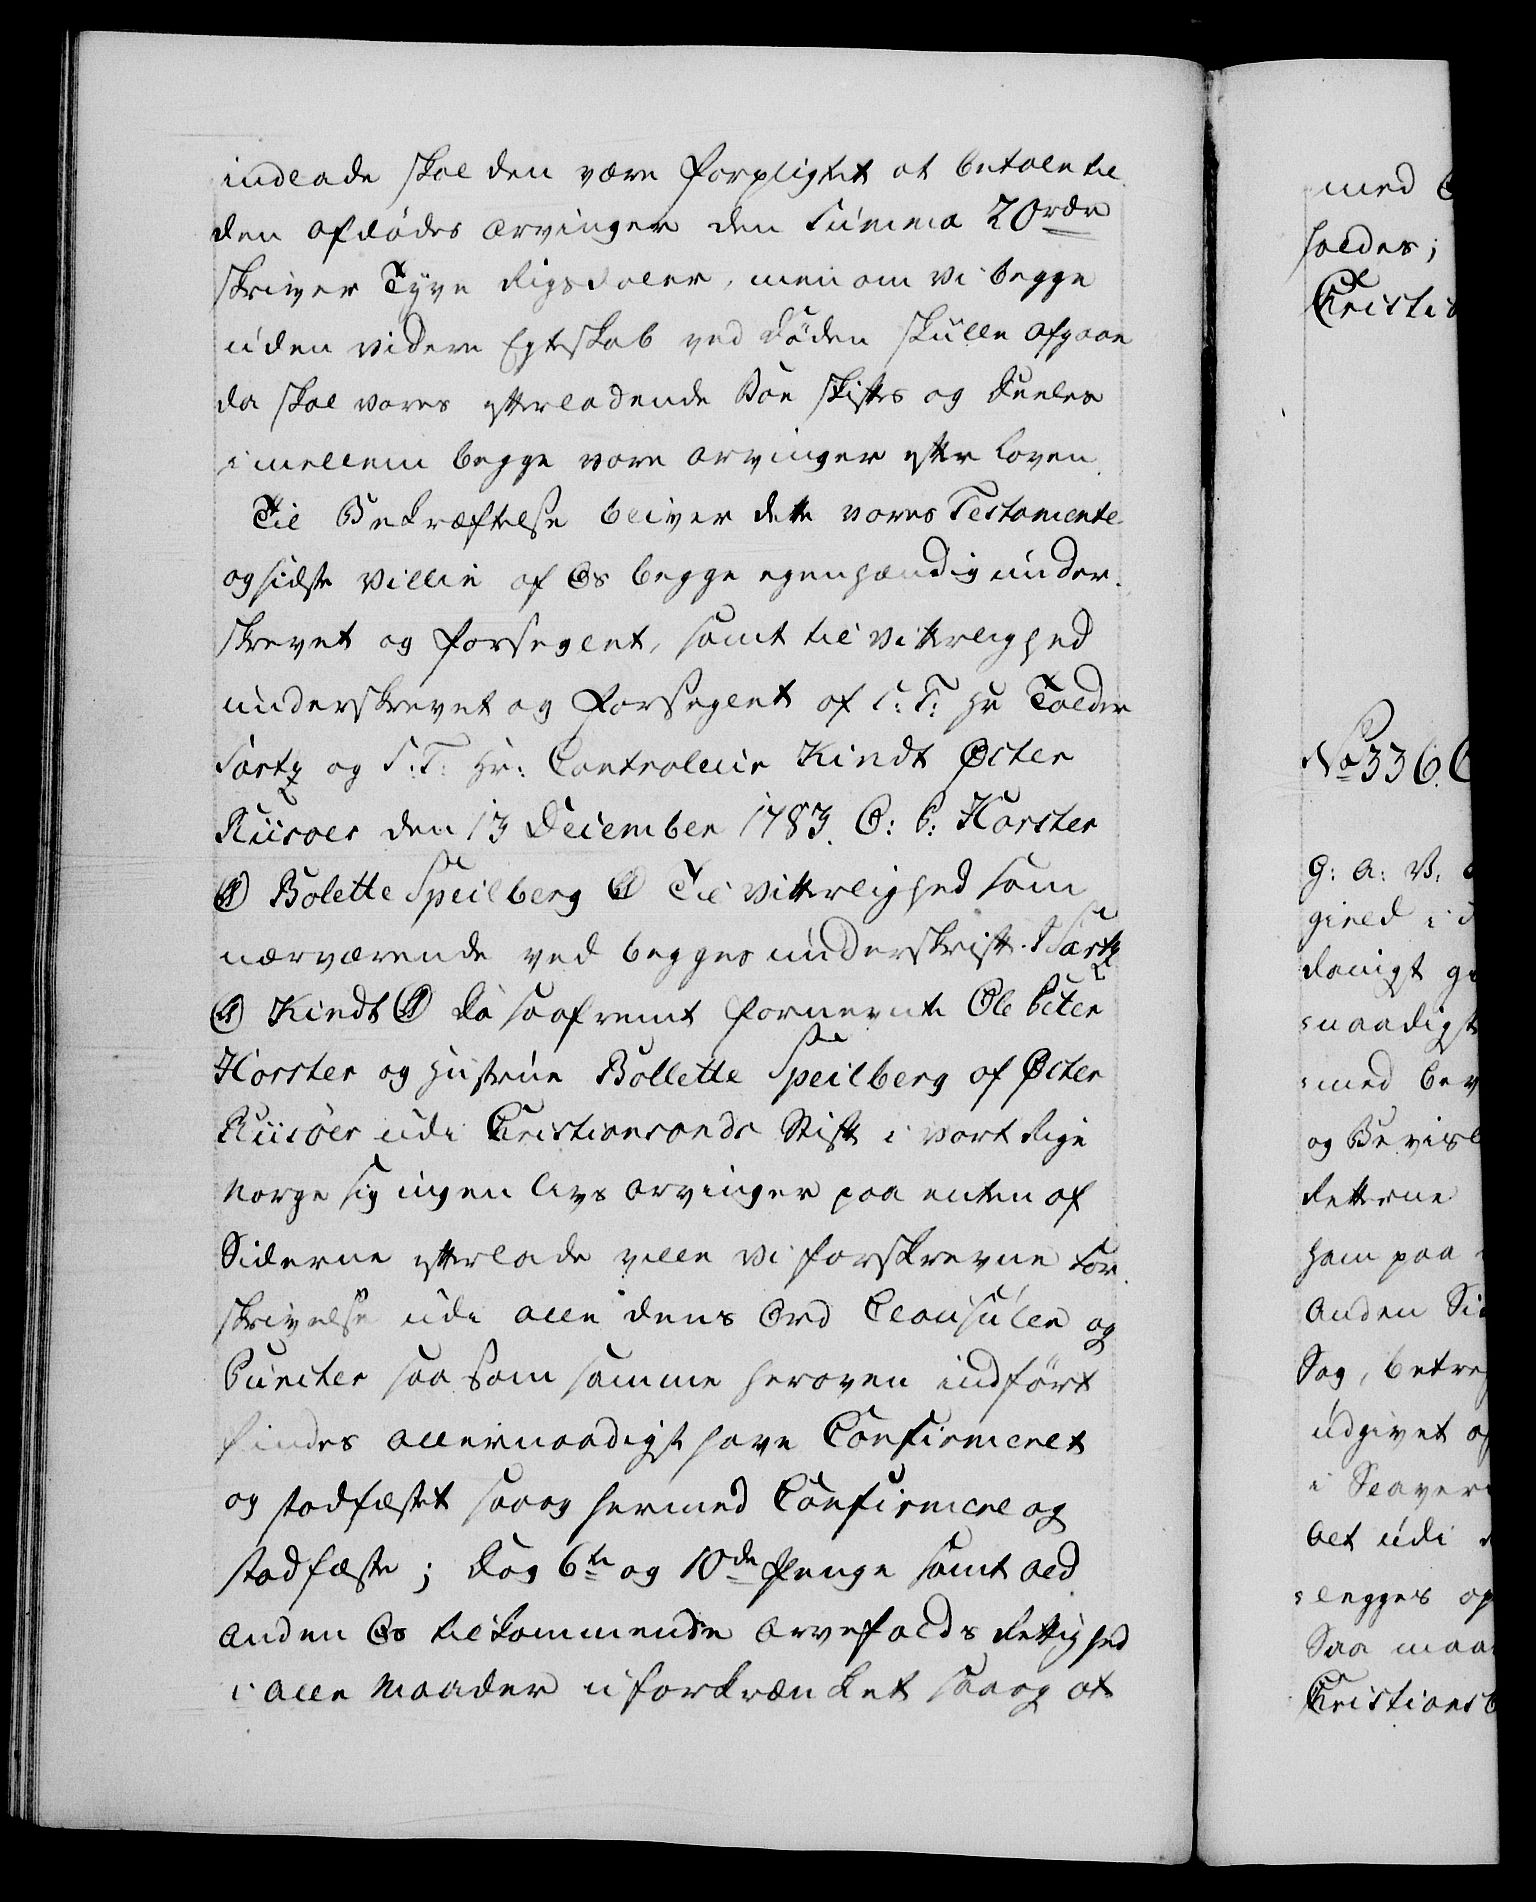 indlade skal den være forpligtet at betale til
den afdødes Arvinger den Summa 20 rdr
skriver Tyve Rigsdaler, men om vi begge
uden videre Egteskab ved Døden skulle afgaae
da skal vores efterladende Boe skiftes og deeles
imellem begge vore Arvinger efter Loven
Til Bekræftelse bliver dette vores Testamente
og sidste Villie af Os begge egenhændig under-
skrevet og forseglet, samt til Vitterlighed
underskrevet og forseglet af S: T: Hr Tolder
Sartz og S: T: Hr: Controleur Kindt Øster
Riisoer den 13 December 1783. O: P: Horster
(LS) Bolette Speilberg (LS) Til Vitterlighed som
nærværende ved begges underskrift. Sartz
(LS) Kindt (LS) Da saafremt fornevnte Ole Peter
Horster og Hustrue Bollette Speilberg af Øster
Riisöer udi Christiansands Stift i vort Rige
Norge sig ingen Livs Arvinger paa enten af
Siderne efterlade ville Vi forskrevne For-
skrivelse udi alle dens Ord Clausuler og
Puncter saa som samme heroven indført
findes allernaadigst have Confirmeret
og stadfæstet saa og hermed Confirmere og
stadfæste; Dog 6te og 10de Penge samt ald
anden Os tilkommende Arvefalds Rettighed
i alle Maader uforkrænket saa og at
med
holdes;
Christi
No 336.
G: A: V:
gield i
danigt
naadigst
med bev
og Bevisl
Retterne
ham paa
anden Si
Sag, betref
udgivet af
i Slaver
det udi
legges op
Saa maa
Christiansb